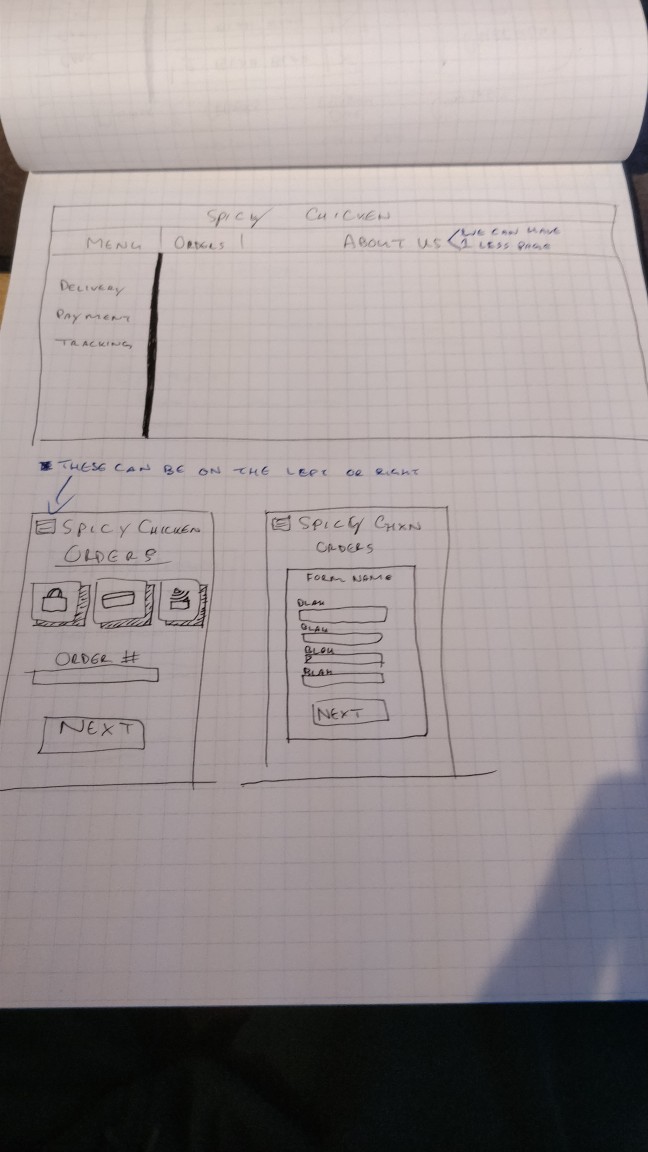 SPICY CHICKEN
MENU ORDERS ABOUT US WE CAN HAVE
1 LESS PAGE
DELIVERY
PAYMENT
TRACKING
THESE CAN BE ON THE LEFT OR RIGHT
SPICY CHICKEN
ORDERS
ORDER #
NEXT
SPICY CHKN
ORDERS
FORM NAME
BLAH
BLAH
BLAH
BLAH
NEXT